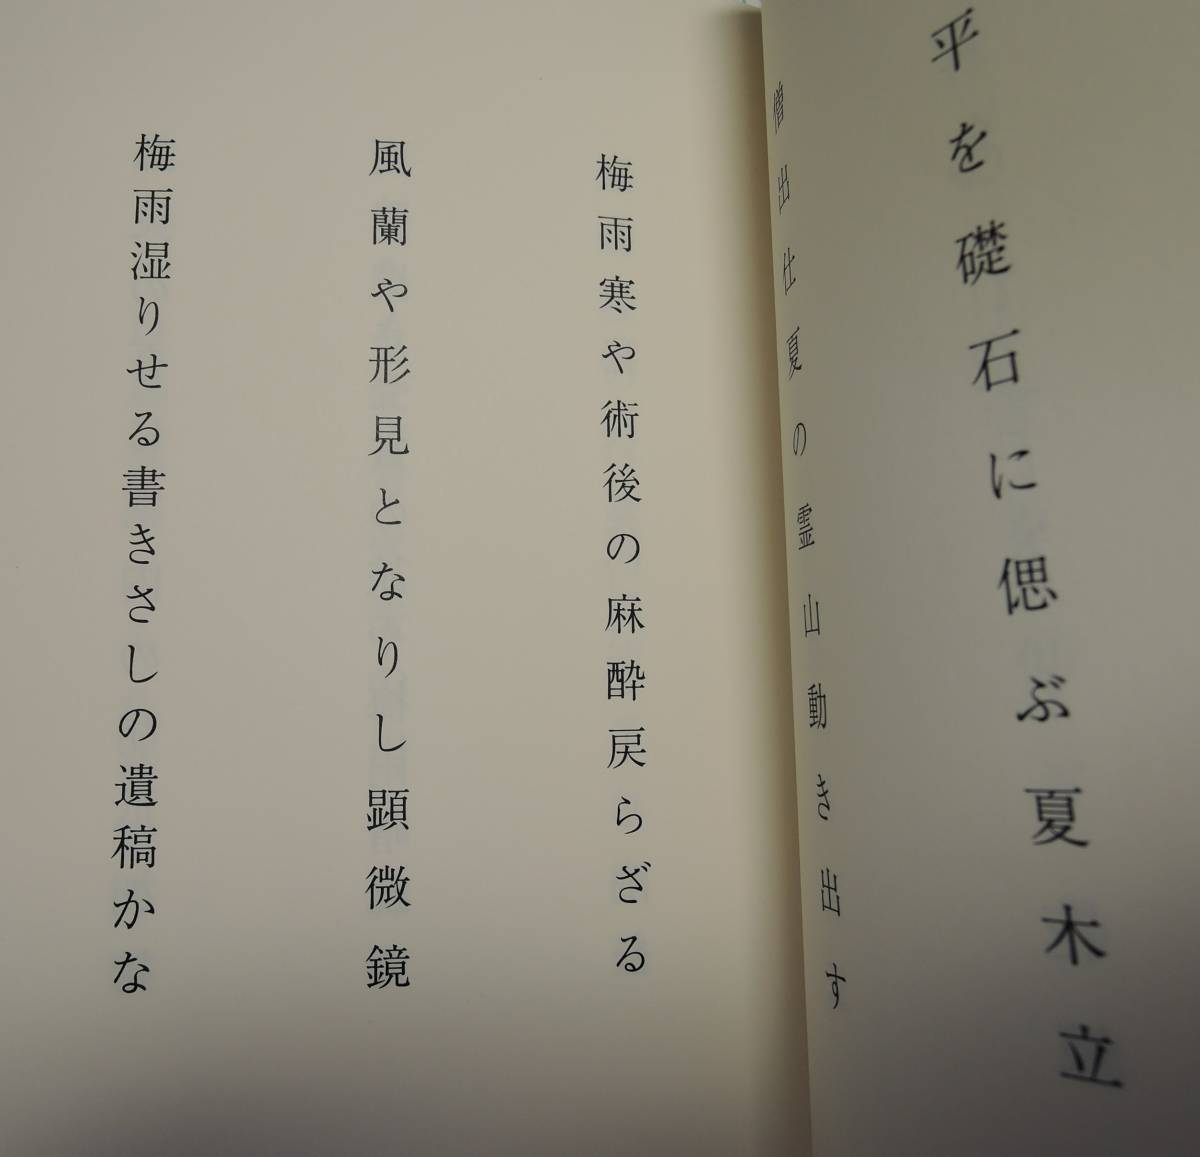 平を礎石に偲ぶ夏木立
僧出仕夏の霊山動き出す
梅雨寒や術後の麻酔戻らざる
風蘭や形見となりし顕微鏡
梅雨湿りせる書きさしの遺稿かな